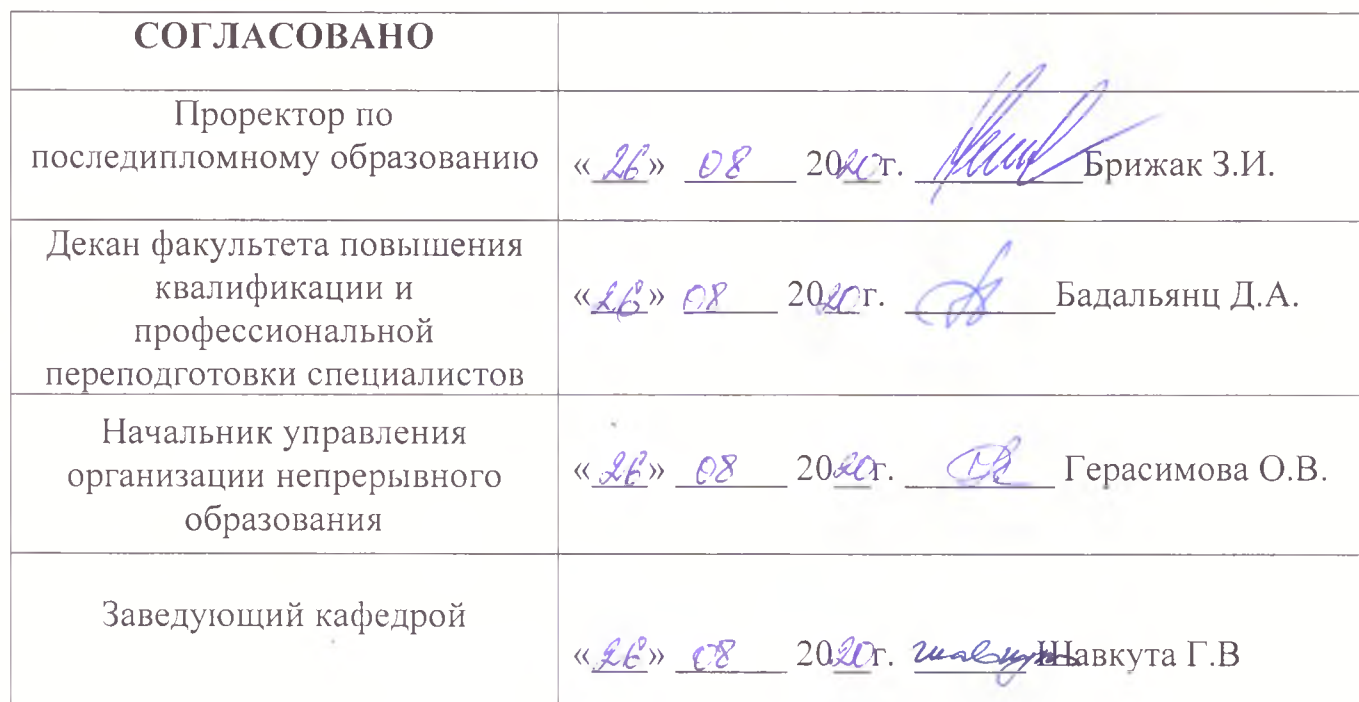 СОГЛАСОВАНО
Проректор по
последипломному образованию
«26» 08 2020г. Брижак З.И.
Декан факультета повышения
квалификации и
профессиональной
переподготовки специалистов
«26» 08 2020г. Бадальянц Д.А.
Начальник управления
организации непрерывного
образования
«26» 08 2020г. Герасимова О.В.
Заведующий кафедрой
«26» 08 2020г. Шавкута Г.В